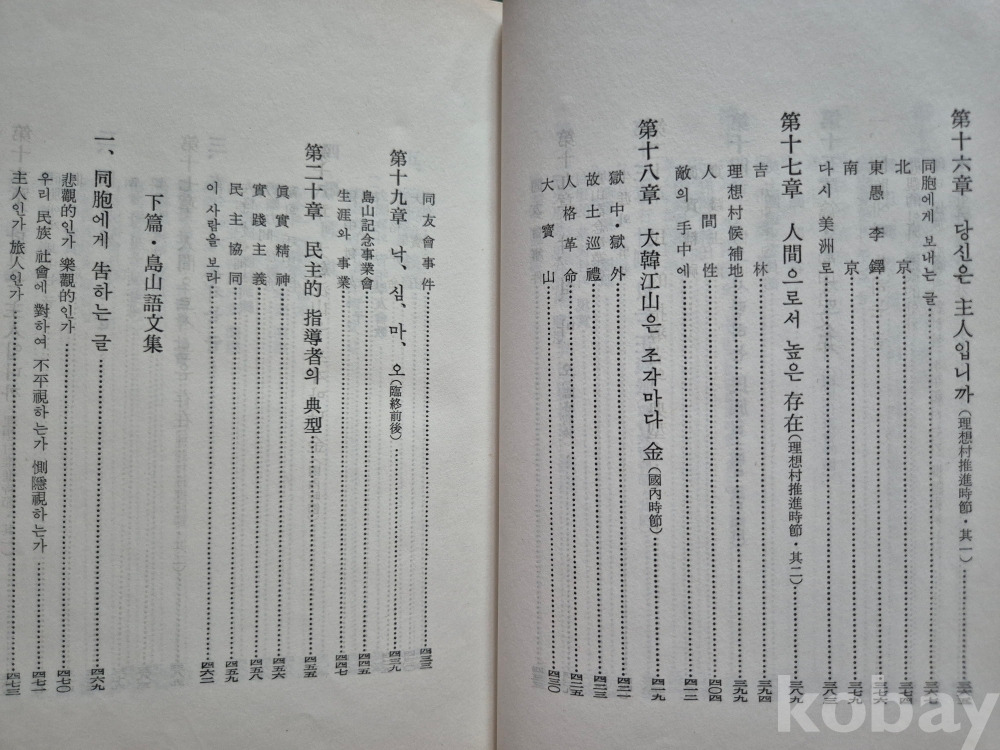 第十六章 당신은 主人입니까(理想村推進時節・其一)…三六五
同胞에게 보내는 글…三六七
北京…三七四
東愚 李鐸…三七六
南京…三七九
다시 美洲로…三八三
第十七章 人間으로서 높은 存在(理想村推進時節・其二)…三八九
吉林…三九四
理想村候補地…三九九
人間性…四〇四
敵의 手中에…四一二
第十八章 大韓江山은 조각마다 金(國內時節)…四一九
獄中・獄外…四二一
故土巡禮…四二三
人格革命…四二五
大寶山…四三〇
同友會事件…四三三
第十九章 낙、심、마、오(臨終前後)…四三九
島山記念事業會…四四五
生涯와 事業…四四七
第二十章 民主的 指導者의 典型…四五五
眞實精神…四五六
實踐主義…四五八
民主協同…四五九
이 사람을 보라…四六二
下篇・島山語文集
一、同胞에게 告하는 글…四六九
悲觀的인가 樂觀的인가…四七〇
우리 民族 社會에 對하여 不平視하는가 惻隱視하는가…四七一
主人인가 旅人인가…四七三
kobay